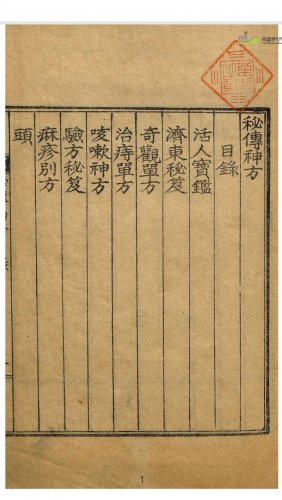 秘傳神方
目錄
活人寶鑑
濟東秘笈
奇觀單方
治痔單方
咳嗽神方
驗方秘笈
麻疹別方
頭
1